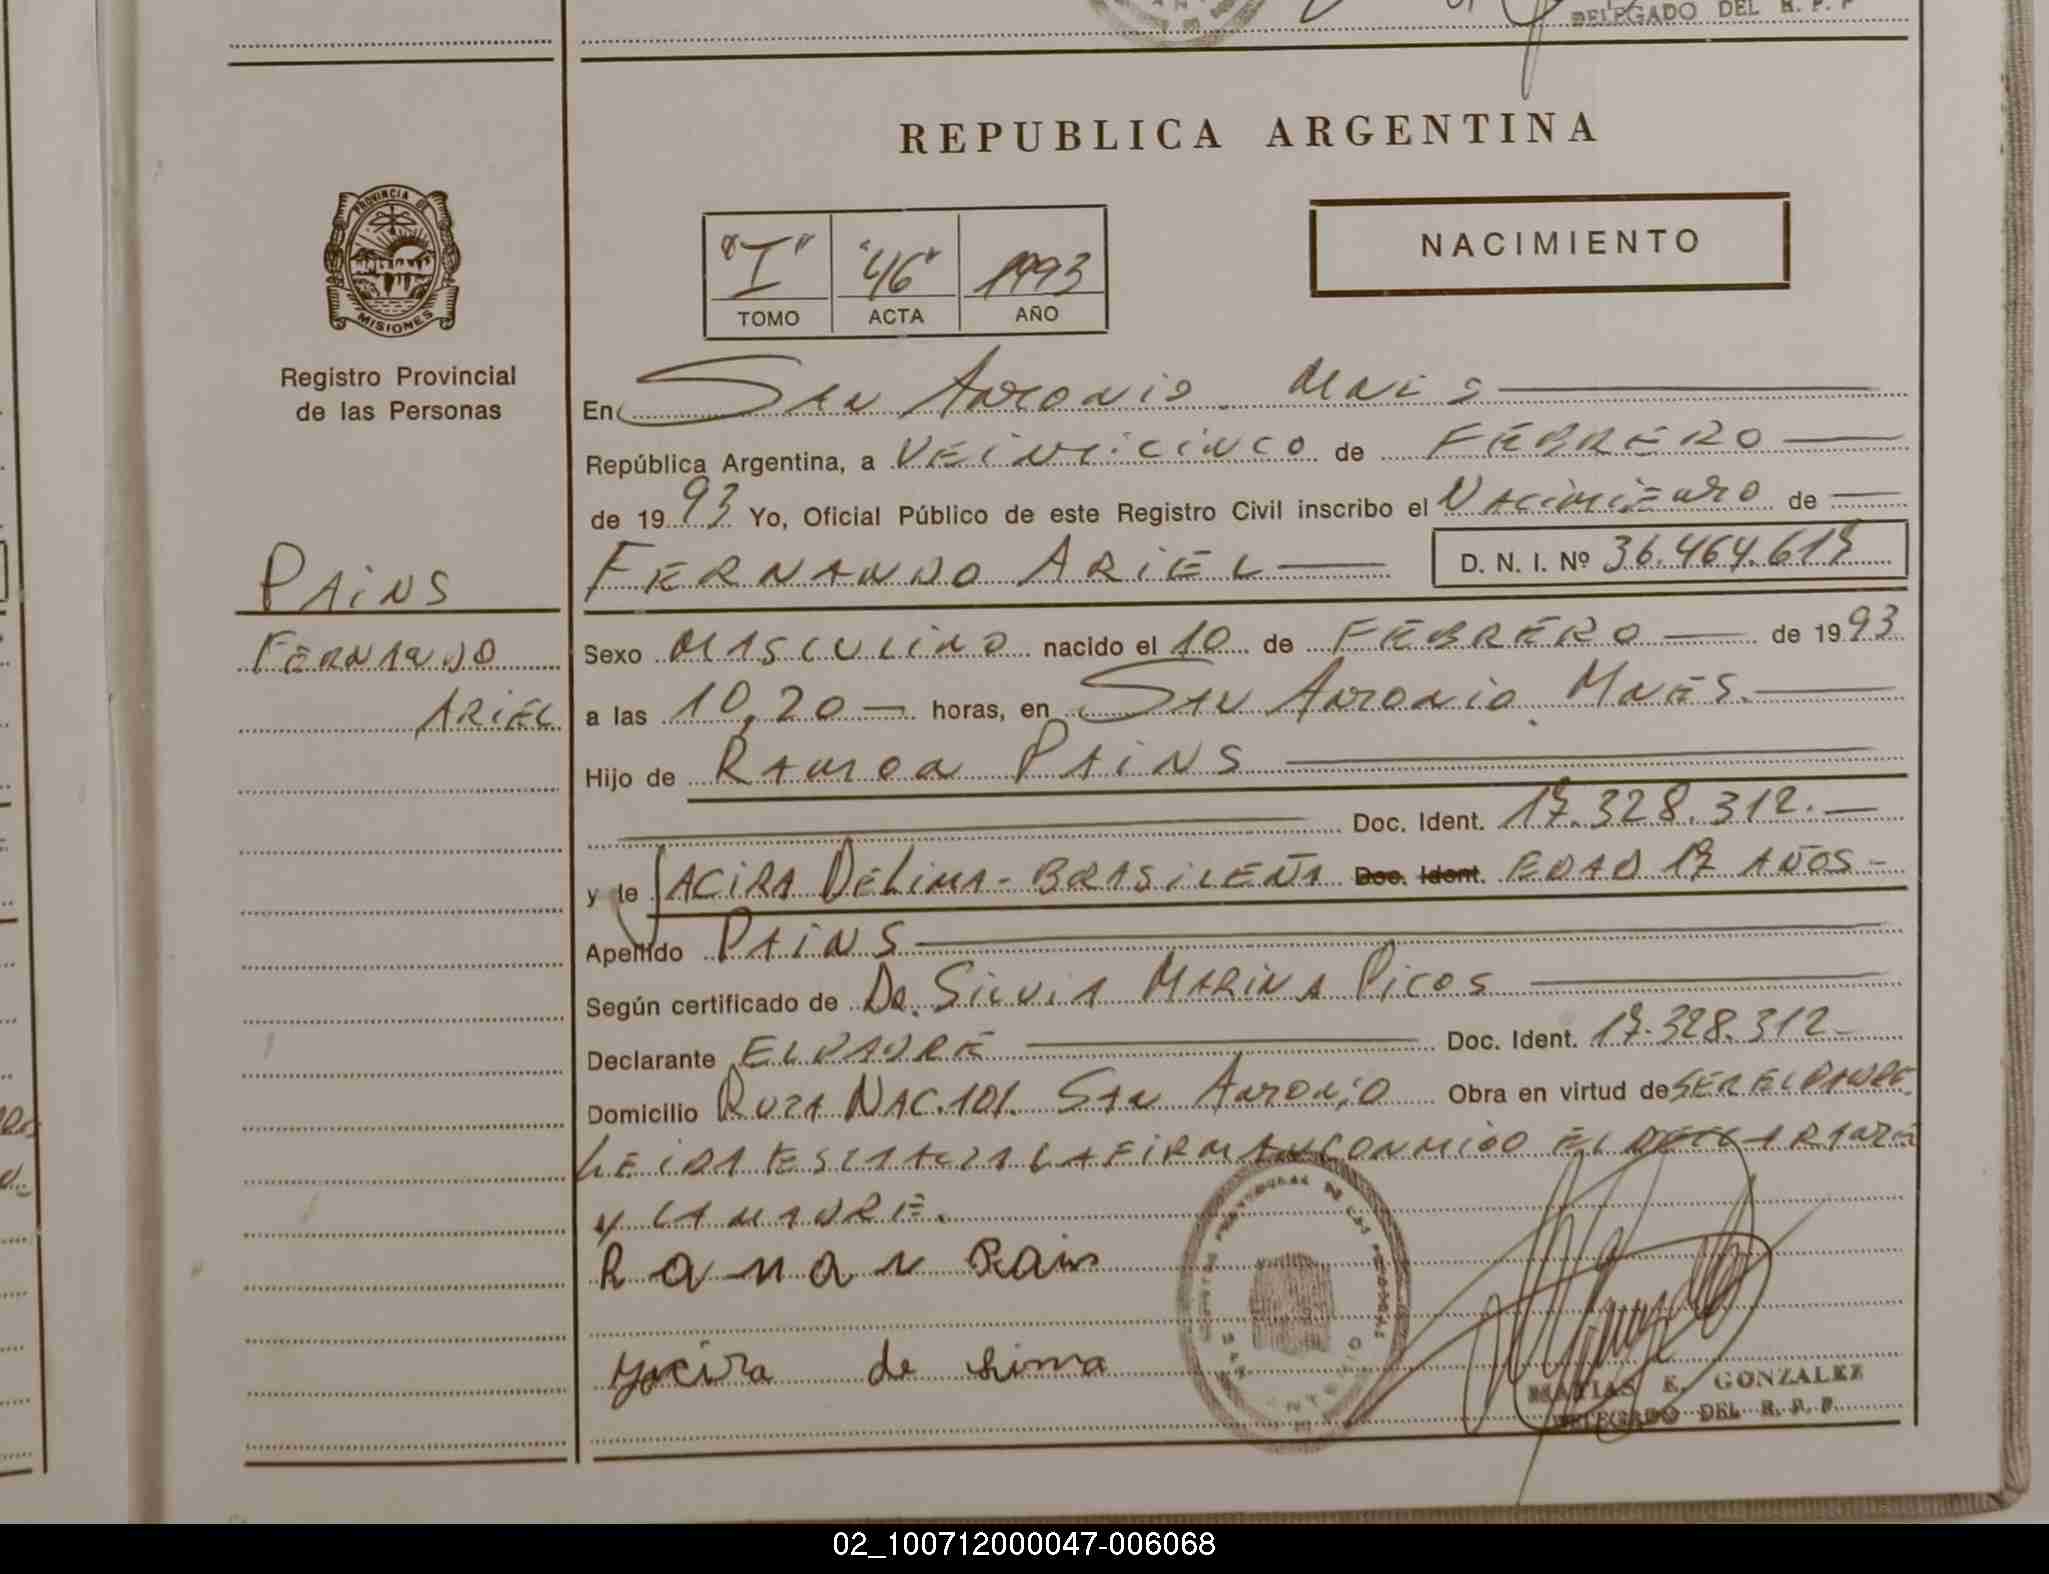 DELEGADO DEL R. P. P
REPUBLICA ARGENTINA
PROVINCIA DE
MISIONES
Registro Provincial
de las Personas
"I" "46" 1993
TOMO ACTA AÑO
NACIMIENTO
En San Antonio Mnes
República Argentina, a VEINTICINCO de FEBRERO
de 1993 Yo, Oficial Público de este Registro Civil inscribo el Nacimiento de
FERNANDO ARIEL D. N. I. Nº 36.464.617
PAINS
FERNANDO
ARIEL
Sexo MASCULINO nacido el 10 de FEBRERO de 1993
a las 10,20 horas, en San Antonio Mnes.
Hijo de Ramon PAINS
Doc. Ident. 17.328.312.
y de JACIRA DE LIMA - BRASILEÑA Doc. Ident. EDAD 17 AÑOS
Apellido PAINS
Según certificado de Da. SILVIA MARINA PICOS
Declarante EL PADRE Doc. Ident. 17.328.312
Domicilio RUTA NAC. 101. San Antonio Obra en virtud de SER EL PADRE
LEIDA ESTA ACTA LA FIRMAN CONMIGO EL DECLARANTE
y LA MADRE.
Raman Pains
Yacira de Lima
MATIAS E. GONZALEZ
DELEGADO DEL R. P. P.
02_100712000047-006068